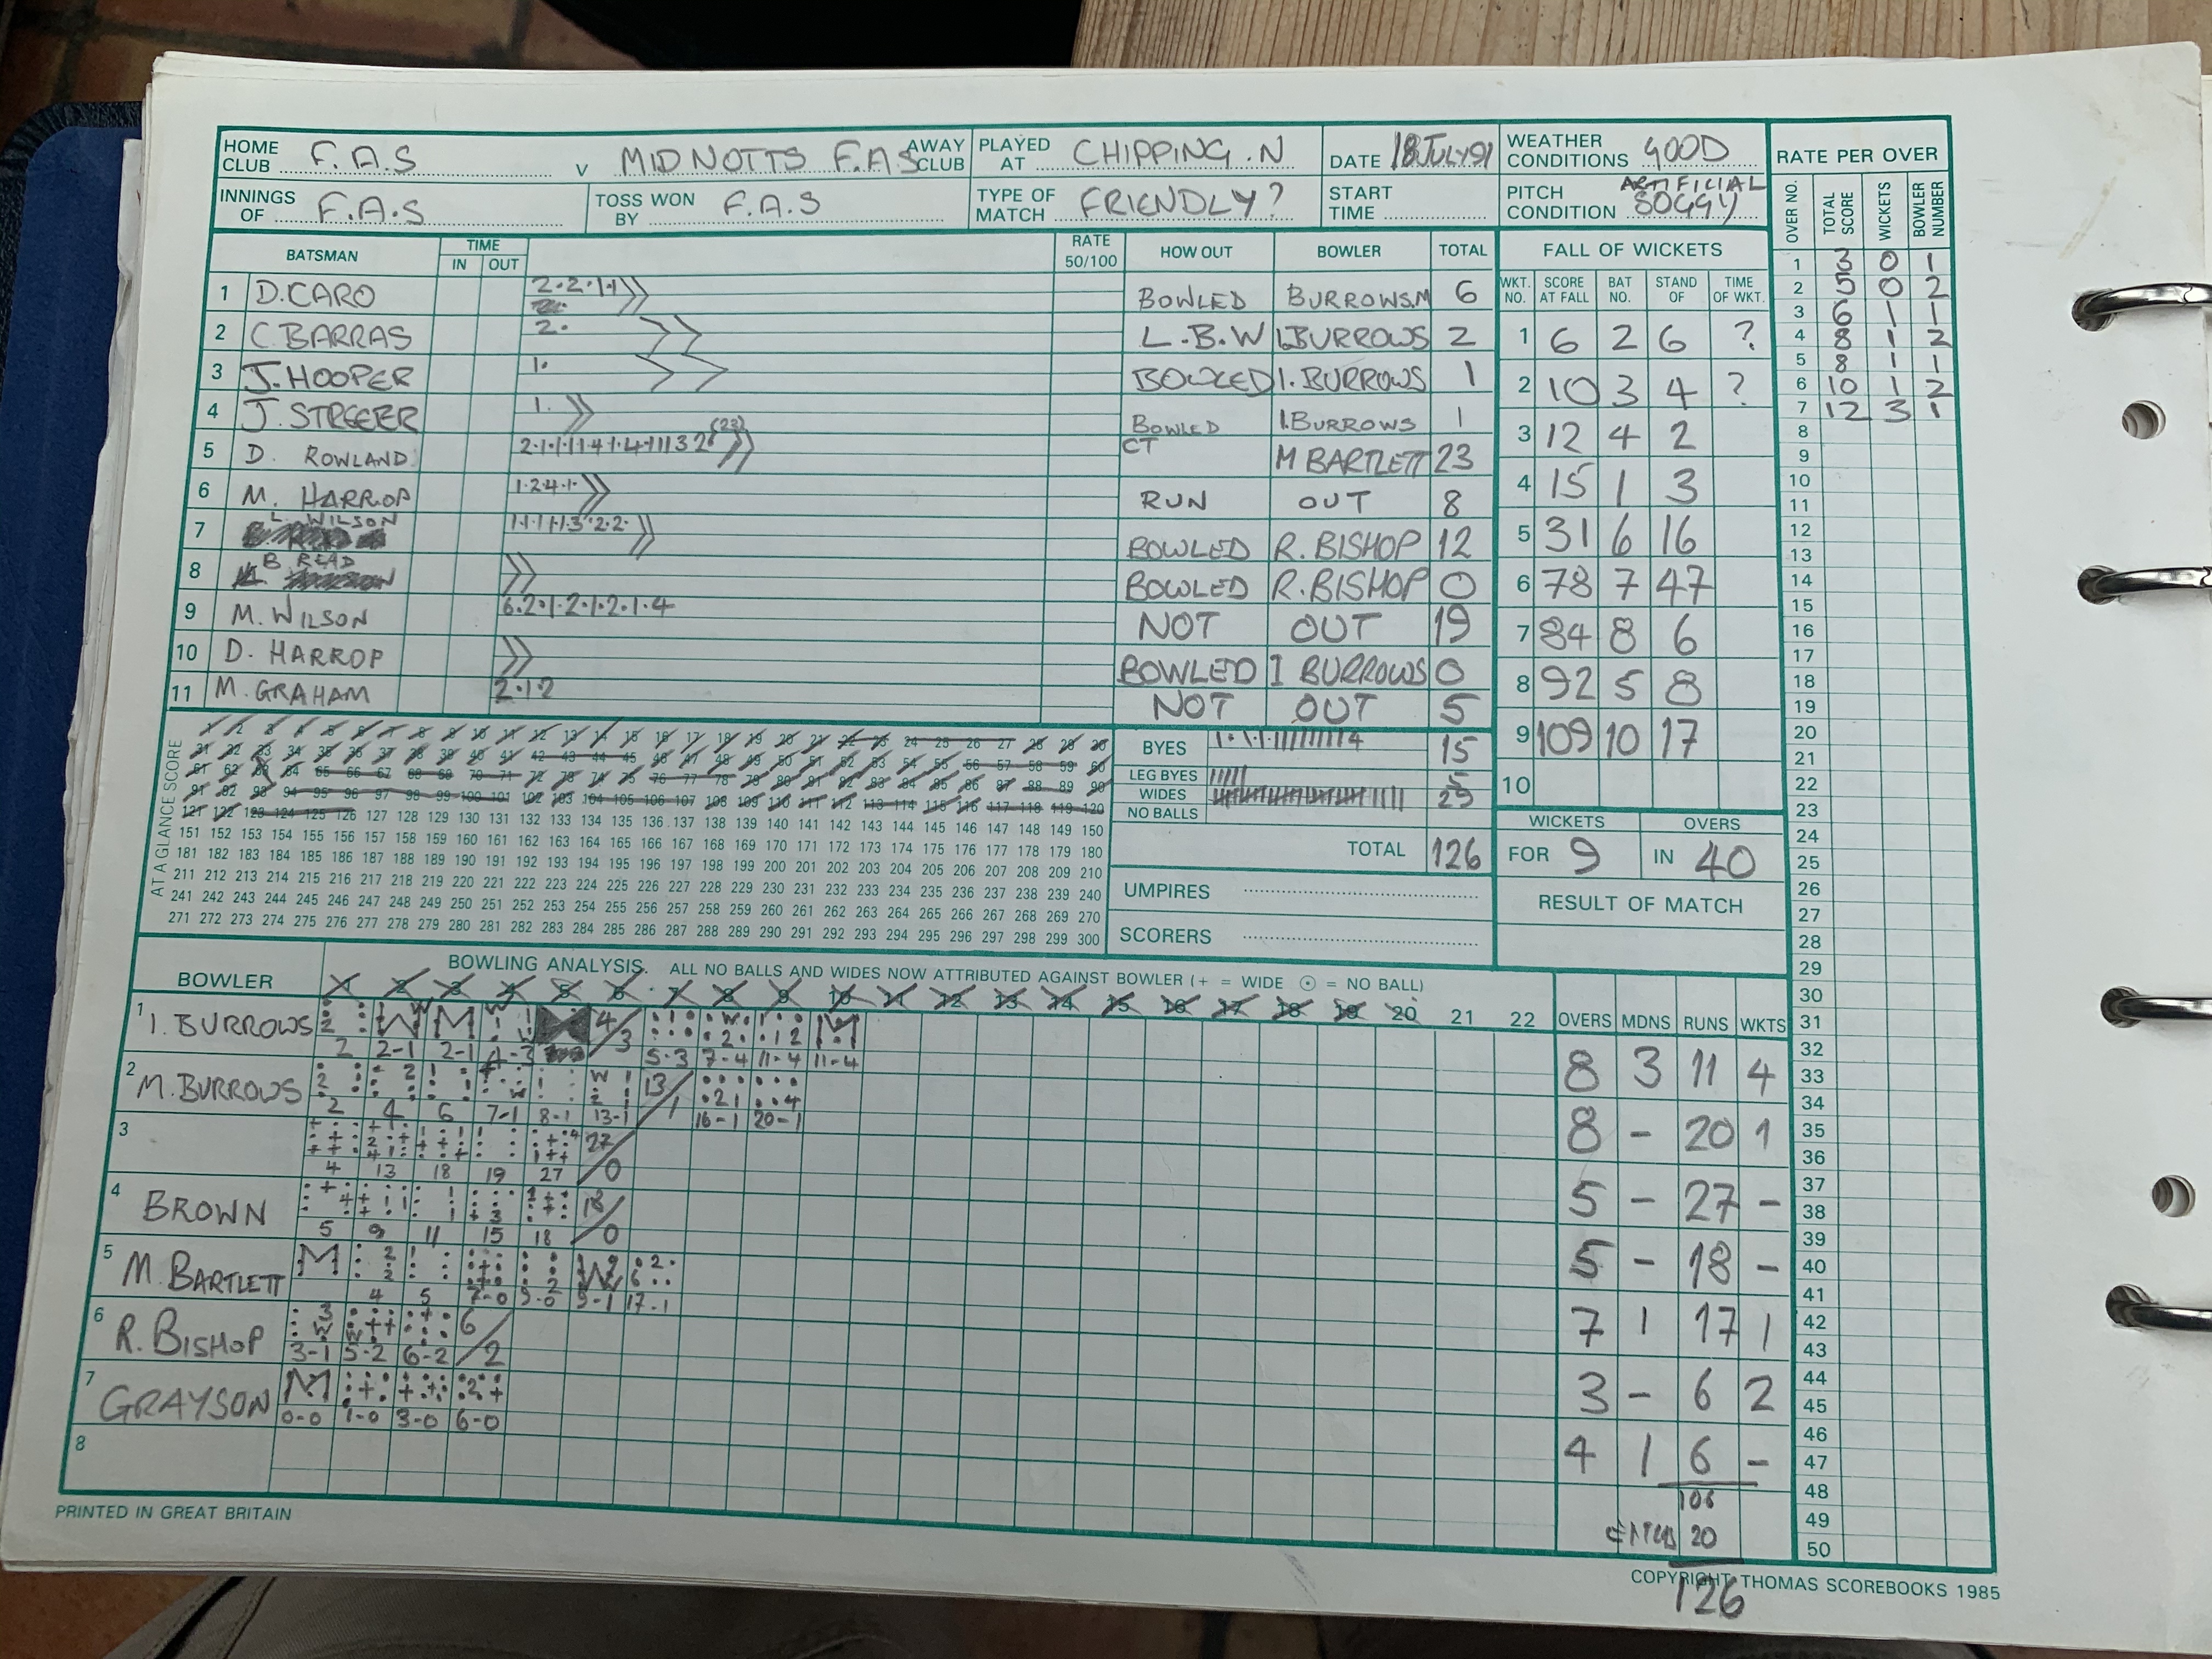 HOME CLUB F.A.S v MID NOTTS F.A.S AWAY CLUB PLAYED AT CHIPPING.N DATE 18 JULY 91 WEATHER CONDITIONS GOOD
INNINGS OF F.A.S TOSS WON BY F.A.S TYPE OF MATCH FRIENDLY? START TIME PITCH CONDITION ARTIFICIAL SOGGY
RATE PER OVER
OVER NO. TOTAL SCORE WICKETS BOWLER NUMBER
1 3 0 1
2 5 0 2
3 6 1 1
4 8 1 2
5 8 1 1
6 10 1 2
7 12 3 1
8
9
10
11
12
13
14
15
16
17
18
19
20
21
22
23
24
25
26
27
28
29
30
31
32
33
34
35
36
37
38
39
40
41
42
43
44
45
46
47
48
49
50
BATSMAN TIME IN OUT RATE 50/100 HOW OUT BOWLER TOTAL
1 D.CARO 2.2.1.1 BOWLED BURROWS.M 6
2 C.BARRAS 2. L.B.W I.BURROWS 2
3 J.HOOPER 1. BOWLED I.BURROWS 1
4 J.STREEER 1. BOWLED I.BURROWS 1
5 D. ROWLAND (23) CT M BARTLETT 23
6 M. HARROP 1.2.4.1. RUN OUT 8
7 L. WILSON BOWLED R. BISHOP 12
8 B READ BOWLED R.BISHOP 0
9 M. WILSON 6.2.1.2.1.2.1.4 NOT OUT 19
10 D. HARROP BOWLED I BURROWS 0
11 M. GRAHAM 2.1.2 NOT OUT 5
FALL OF WICKETS
WKT. NO. SCORE AT FALL BAT NO. STAND OF TIME OF WKT.
1 6 2 6 ?
2 10 3 4 ?
3 12 4 2
4 15 1 3
5 31 6 16
6 78 7 47
7 84 8 6
8 92 5 8
9 109 10 17
10
AT A GLANCE SCORE
1 2 3 4 5 6 7 8 9 10 11 12 13 14 15 16 17 18 19 20 21 22 23 24 25 26 27 28 29 30
31 32 33 34 35 36 37 38 39 40 41 42 43 44 45 46 47 48 49 50 51 52 53 54 55 56 57 58 59 60
61 62 63 64 65 66 67 68 69 70 71 72 73 74 75 76 77 78 79 80 81 82 83 84 85 86 87 88 89 90
91 92 93 94 95 96 97 98 99 100 101 102 103 104 105 106 107 108 109 110 111 112 113 114 115 116 117 118 119 120
121 122 123 124 125 126 127 128 129 130 131 132 133 134 135 136 137 138 139 140 141 142 143 144 145 146 147 148 149 150
151 152 153 154 155 156 157 158 159 160 161 162 163 164 165 166 167 168 169 170 171 172 173 174 175 176 177 178 179 180
181 182 183 184 185 186 187 188 189 190 191 192 193 194 195 196 197 198 199 200 201 202 203 204 205 206 207 208 209 210
211 212 213 214 215 216 217 218 219 220 221 222 223 224 225 226 227 228 229 230 231 232 233 234 235 236 237 238 239 240
241 242 243 244 245 246 247 248 249 250 251 252 253 254 255 256 257 258 259 260 261 262 263 264 265 266 267 268 269 270
271 272 273 274 275 276 277 278 279 280 281 282 283 284 285 286 287 288 289 290 291 292 293 294 295 296 297 298 299 300
BYES 15
LEG BYES 5
WIDES 29
NO BALLS
TOTAL 126
UMPIRES
SCORERS
WICKETS OVERS
FOR 9 IN 40
RESULT OF MATCH
BOWLER BOWLING ANALYSIS. ALL NO BALLS AND WIDES NOW ATTRIBUTED AGAINST BOWLER (+ = WIDE ⊙ = NO BALL)
1 2 3 4 5 6 7 8 9 10 11 12 13 14 15 16 17 18 19 20 21 22 OVERS MDNS RUNS WKTS
1 I. BURROWS 2 2-1 2-1 4-3 4/3 5-3 7-4 11-4 11-4 8 3 11 4
2 M. BURROWS 2 4 6 7-1 8-1 13-1 13/1 16-1 20-1 8 - 20 1
3 4 13 18 19 27 27/0 5 - 27 -
4 BROWN 5 9 11 15 18 18/0 5 - 18 -
5 M. BARTLETT M 4 5 7-0 9-0 9-1 17-1 7 1 17 1
6 R. BISHOP 3-1 5-2 6-2 6/2 3 - 6 2
7 GRAYSON M 0-0 1-0 3-0 6-0 4 1 6 -
8
106
20
126
PRINTED IN GREAT BRITAIN
COPYRIGHT THOMAS SCOREBOOKS 1985